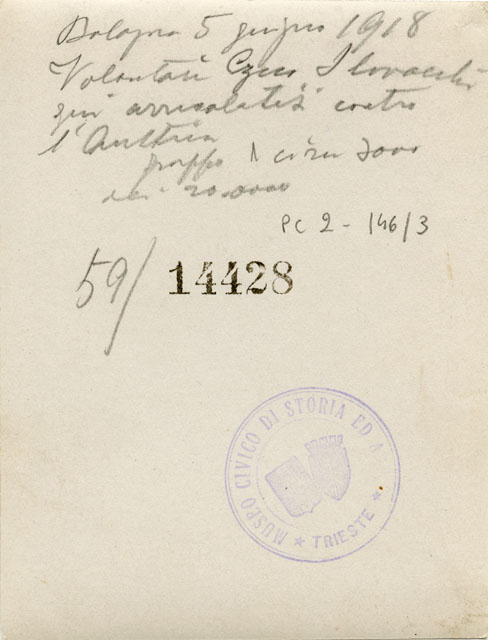 Bologna 5 giugno 1918
Volontari Czeco Slovacchi
qui arruolatisi contro
l'Austria
gruppo circa 3000
dei 20.0000
PC 2 - 146/3
59/ 14428
MUSEO CIVICO DI STORIA ED A
★ TRIESTE ★